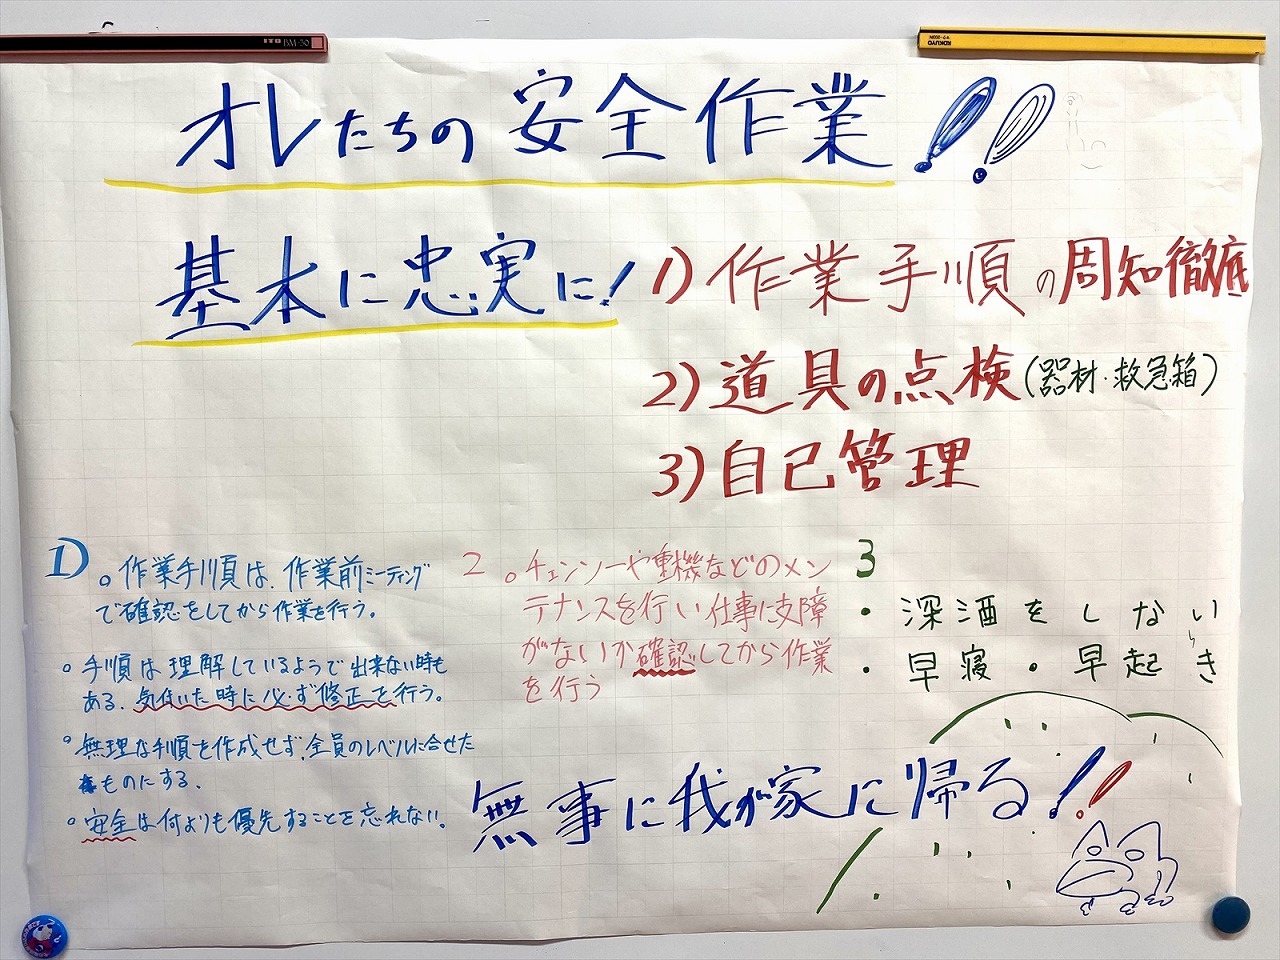 オレたちの安全作業!!
基本に忠実に!
1) 作業手順の周知徹底
2) 道具の点検(器材・救急箱)
3) 自己管理
1)
。作業手順は、作業前ミーティング
で確認をしてから作業を行う。
。手順は理解しているようで出来ない時も
ある、気付いた時に必ず修正を行う。
。無理な手順を作成せず、全員のレベルに合せた
ものにする。
。安全は何よりも優先することを忘れない。
2 。チェンソーや重機などのメン
テナンスを行い仕事に支障
がないか確認してから作業
を行う
3
・深酒をしない
・早寝・早起き
無事に我が家に帰る!!
ITO BM-30
KOKUYO